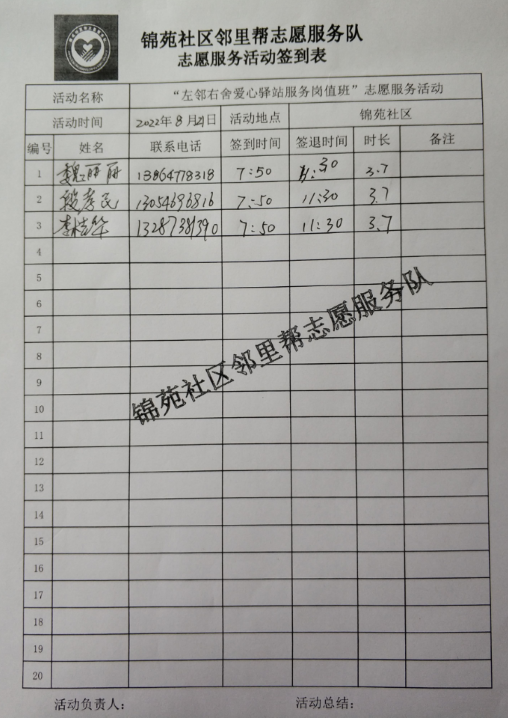 锦苑社区邻里帮志愿服务队
志愿服务活动签到表
活动名称 “左邻右舍爱心驿站服务岗值班”志愿服务活动
活动时间 2022年8月21日 活动地点 锦苑社区
编号 姓名 联系电话 签到时间 签退时间 时长 备注
1 魏丽丽 13864778318 7:50 11:30 3.7
2 段孝民 13054696816 7:50 11:30 3.7
3 7:50 11:30 3.7
4
5
6
7
8
9
10
11
12
13
14
15
16
17
18
19
20
锦苑社区邻里帮志愿服务队
活动负责人: 活动总结: